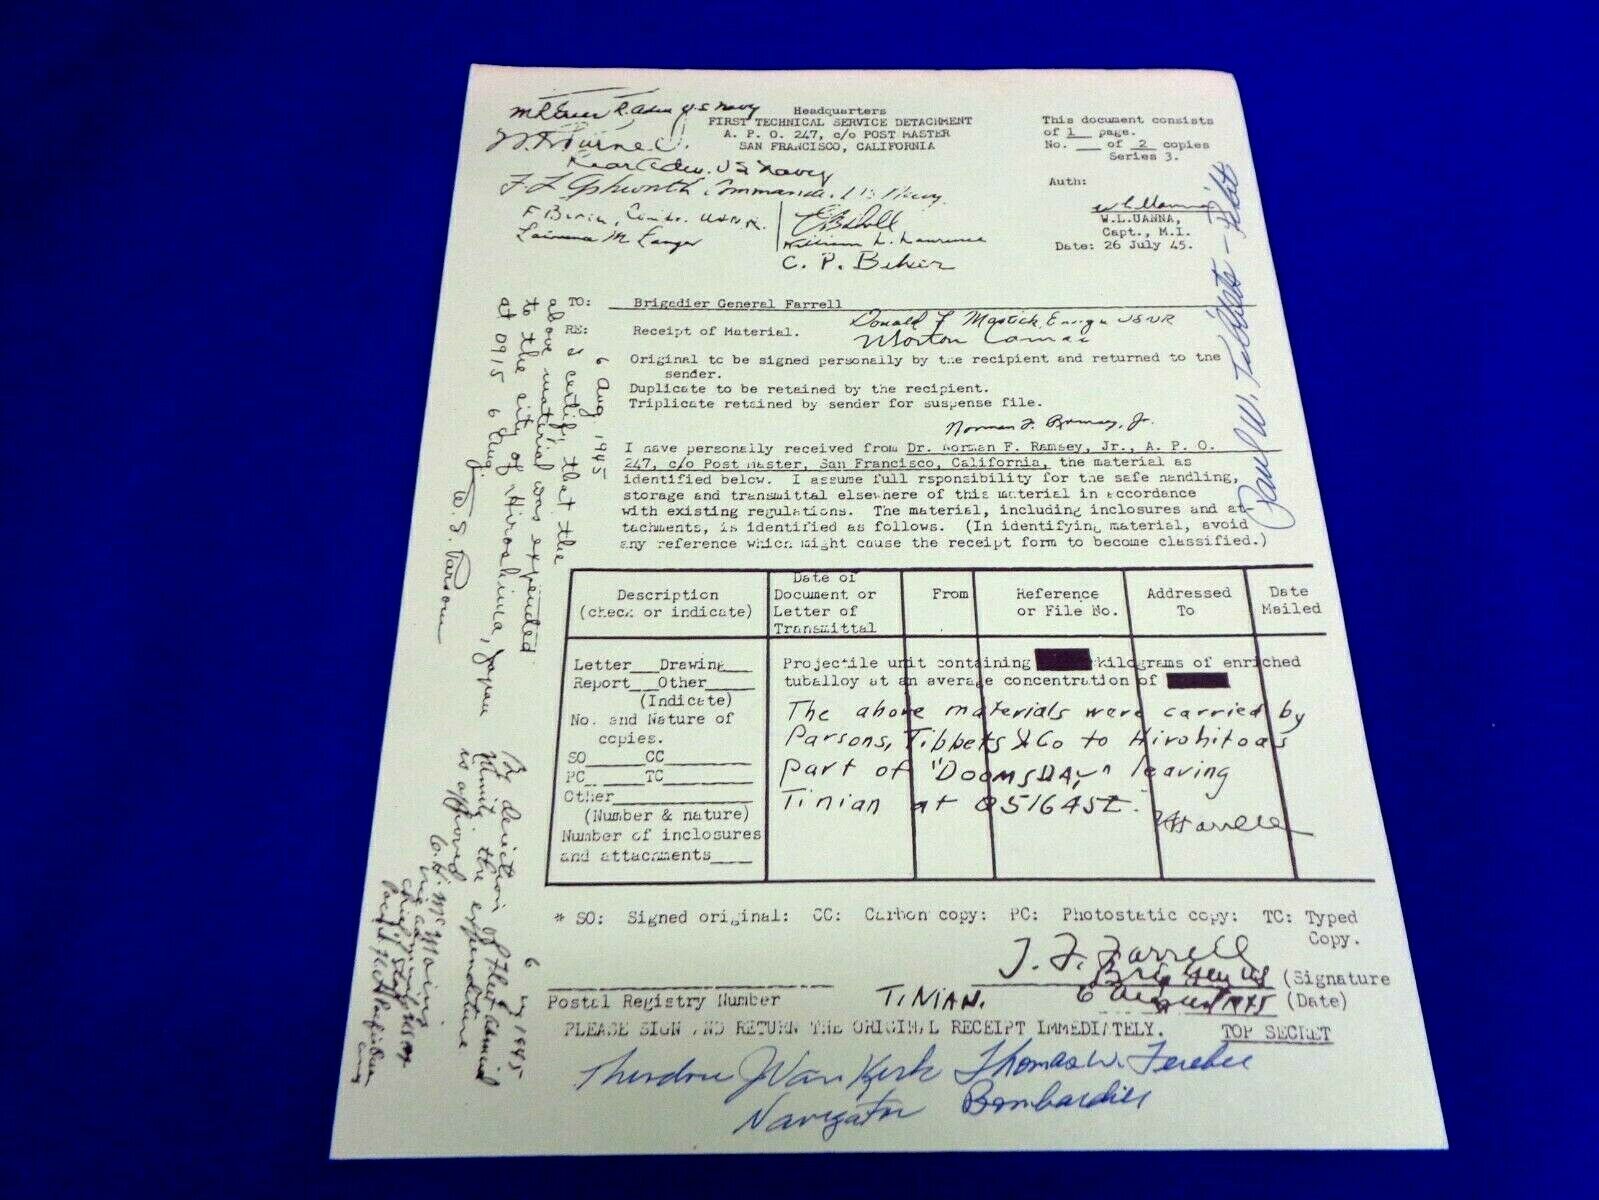 Headquarters
FIRST TECHNICAL SERVICE DETACHMENT
A. P. O. 247, c/o POST MASTER
SAN FRANCISCO, CALIFORNIA
This document consists
of 1 page.
No. ___ of 2 copies
Series 3.
Auth:
W.L.UANNA,
Capt., M.I.
Date: 26 July 45.
R. Adm U.S Navy
Rear Adm. US Navy
F L Ashworth, Commander, US Navy
William L. Laurence
C. P. Baker
TO: Brigadier General Farrell
RE: Receipt of Material.
Donald F Mastick, Ensign USNR
Morton Camac
Original to be signed personally by the recipient and returned to the
sender.
Duplicate to be retained by the recipient.
Triplicate retained by sender for suspense file.
Norman F. Ramsey, Jr.
I have personally received from Dr. Norman F. Ramsey, Jr., A. P. O.
247, c/o Post Master, San Francisco, California, the material as
identified below. I assume full rsponsibility for the safe handling,
storage and transmittal elsewhere of this material in accordance
with existing regulations. The material, including inclosures and at-
tachments, is identified as follows. (In identifying material, avoid
any reference which might cause the receipt form to become classified.)
Description
(check or indicate)
Date of
Document or
Letter of
Transmittal
From
Reference
or File No.
Addressed
To
Date
Mailed
Letter___Drawing___
Report___Other_____
(Indicate)
No. and Nature of
copies.
SO______CC________
PC______TC________
Other_____________
(Number & nature)
Number of inclosures
and attachments____
Projectile unit containing kilograms of enriched
tuballoy at an average concentration of
The above materials were carried by
Parsons, Tibbets & Co to Hirohito as
part of "Doomsday" leaving
Tinian at 051645Z.
TFFarrell
* SO: Signed original: CC: Carbon copy: PC: Photostatic copy: TC: Typed
Copy.
T. F. Farrell
Brig Gen US (Signature
Postal Registry Number
TINIAN. 6 August 1945 (Date)
PLEASE SIGN AND RETURN THE ORIGINAL RECEIPT IMMEDIATELY. TOP SECRET
Theodore J Van Kirk
Navigator
Thomas W. Ferebee
Bombardier
Paul W. Tibbets - Pilot
6 Aug 1945
I certify that the
above material was expended
to the city of Hiroshima, Japan
at 0915 6 Aug.
W. S. Parsons
6 Aug 1945
By direction of Fleet Admiral
Nimitz the expenditure
is approved